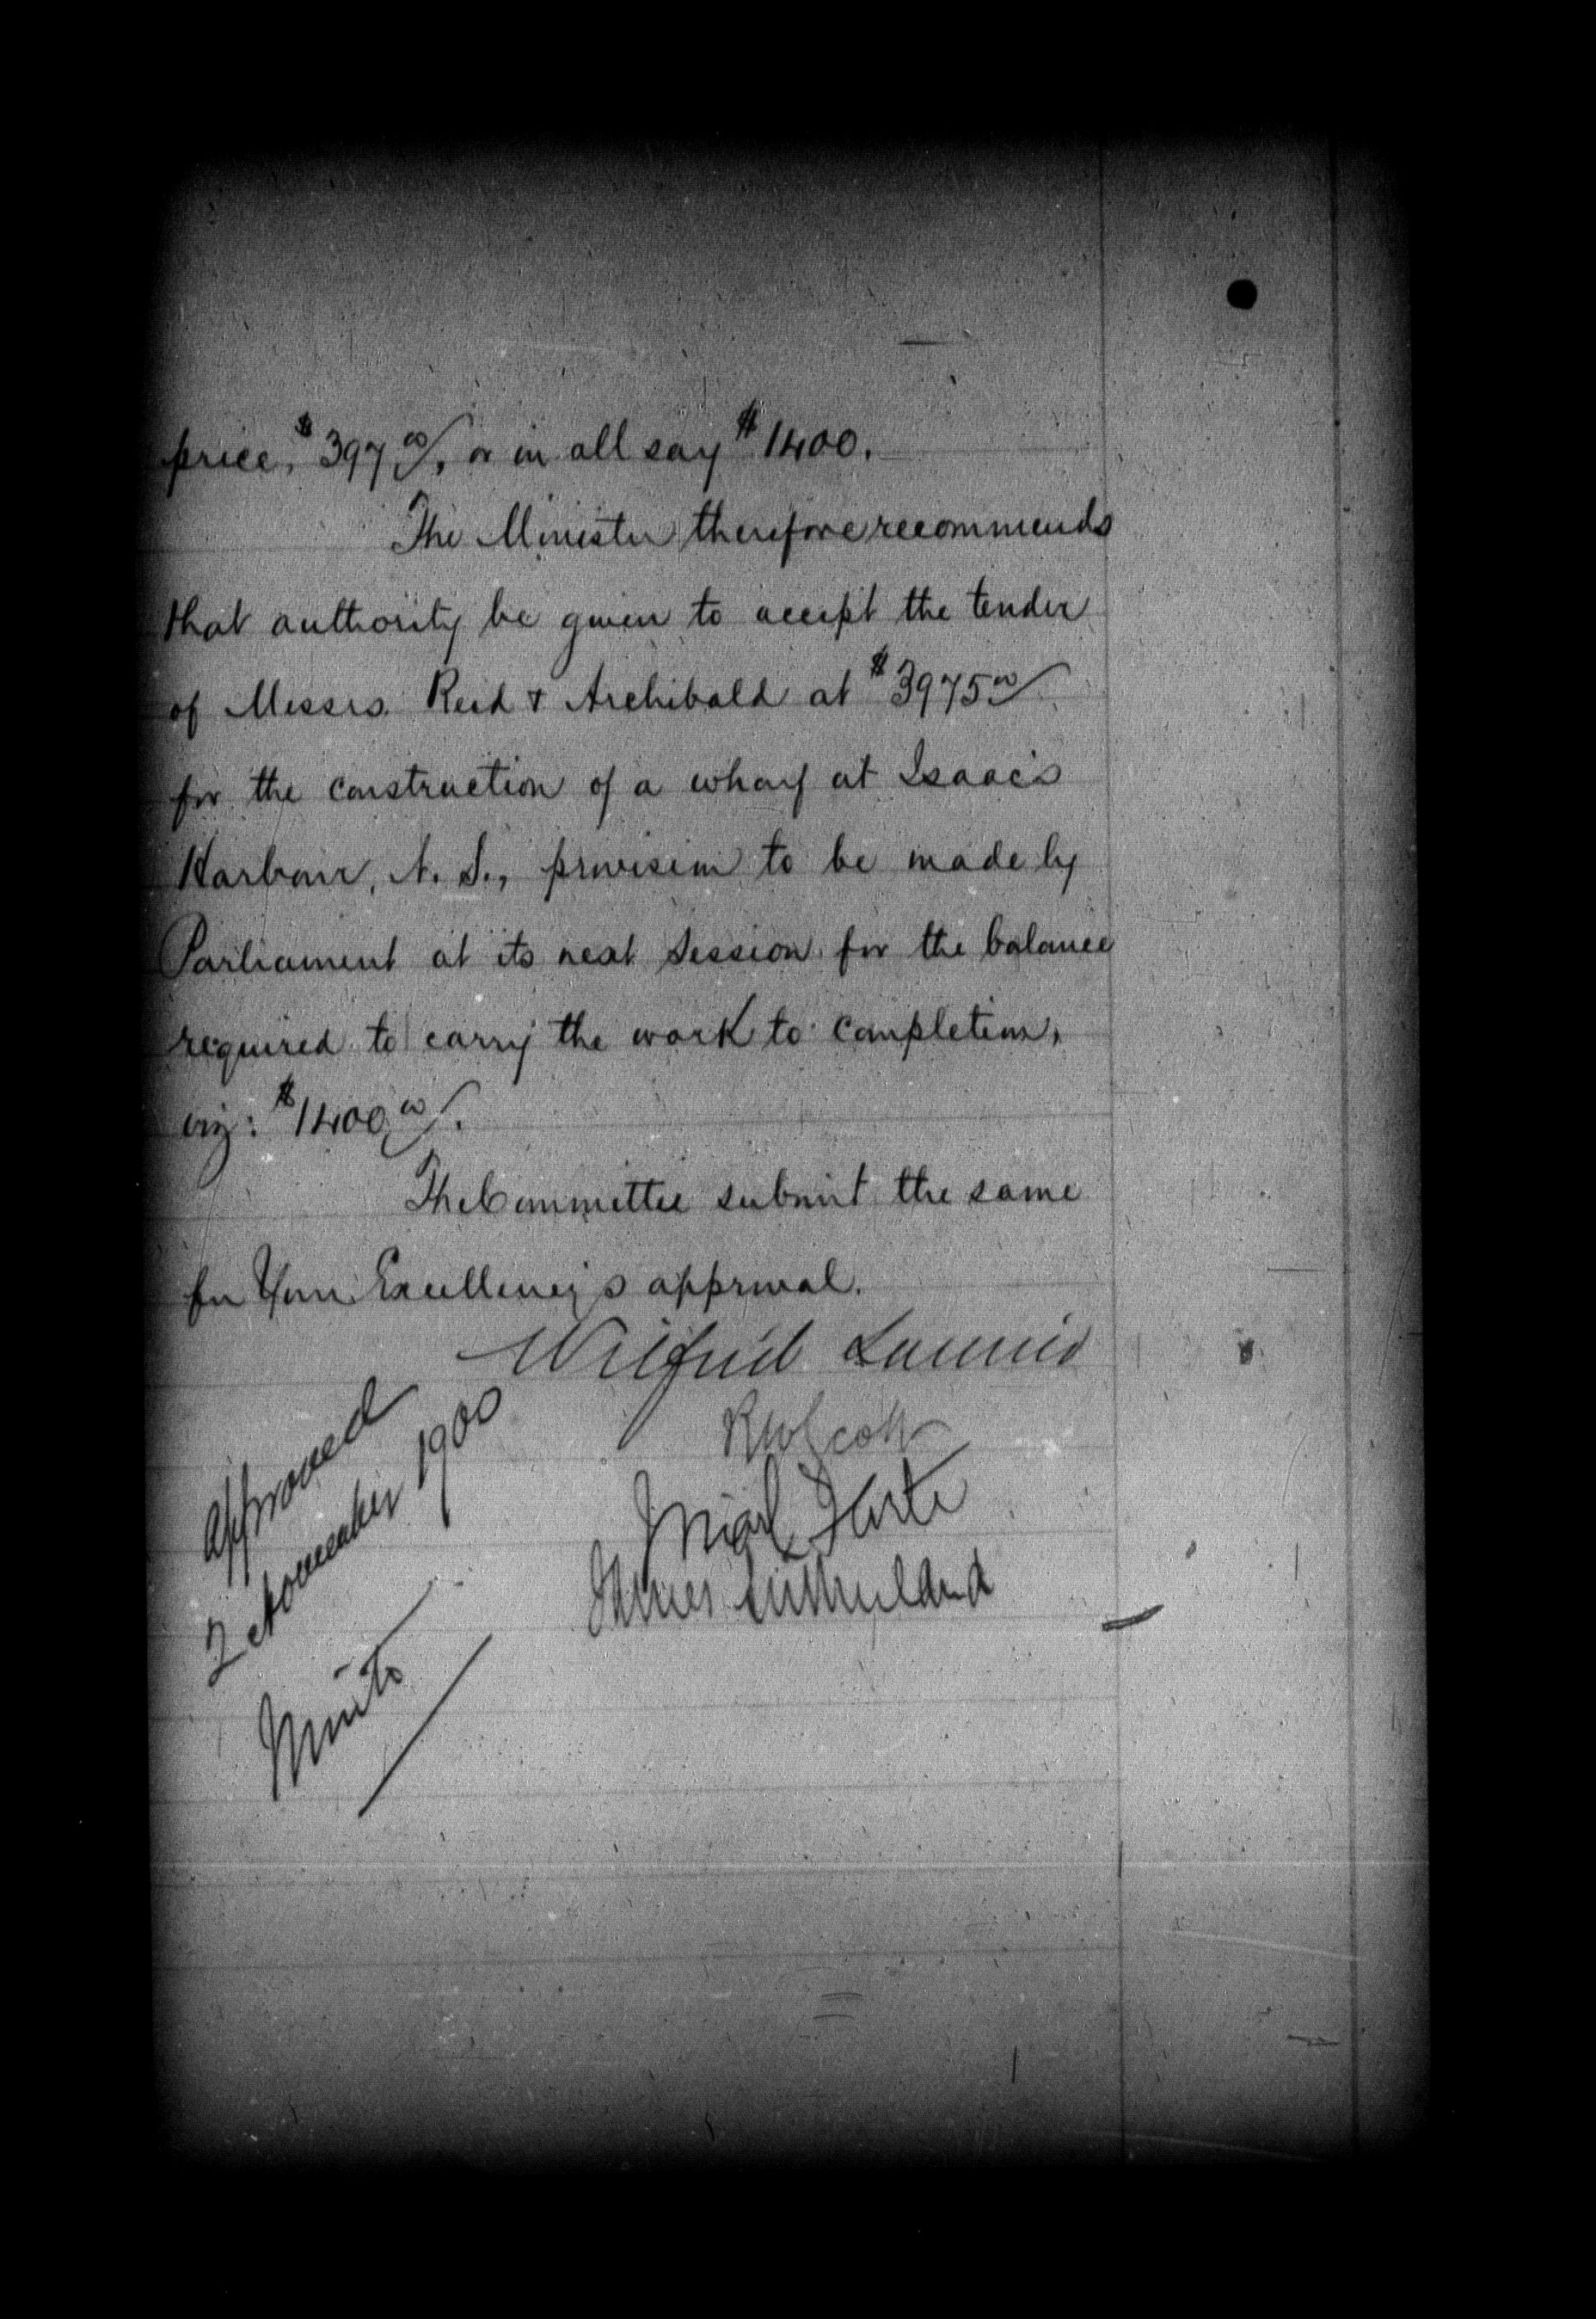 price, $397 00/, or in all say $1400.
The Minister therefore recommends
that authority be given to accept the tender
of Messrs. Reid & Archibald at $3975 00/
for the construction of a wharf at Isaac's
Harbour, N. S., provision to be made by
Parliament at its next Session for the balance
required to carry the work to completion,
viz: $1400 00/.
The Committee submit the same
for Your Excellency's approval.
Wilfrid Laurier
RWScott
J Isral Tarte
James Sutherland
Approved
2 November 1900
Minto